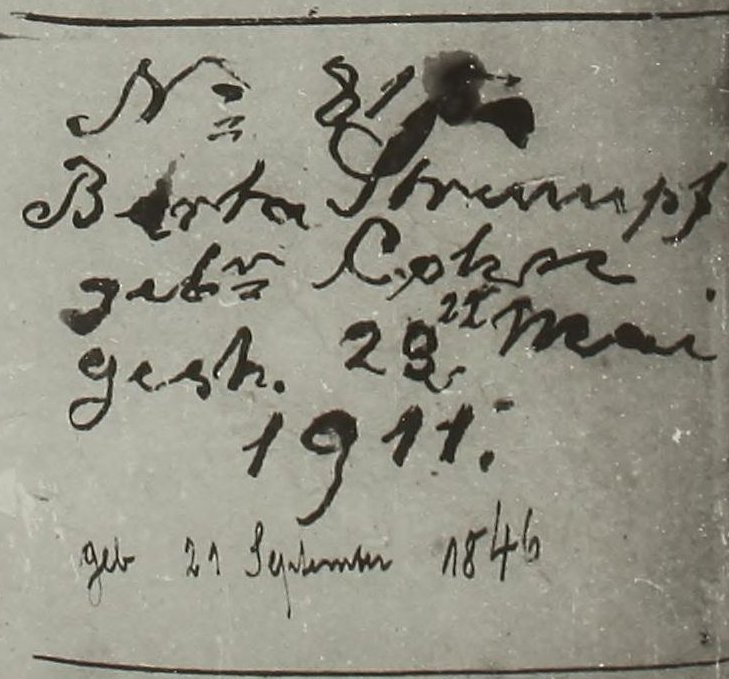 No 81
Berta Strumpf
gebn Cohn
gest. 23 22 Mai
1911.
geb 21 September 1846